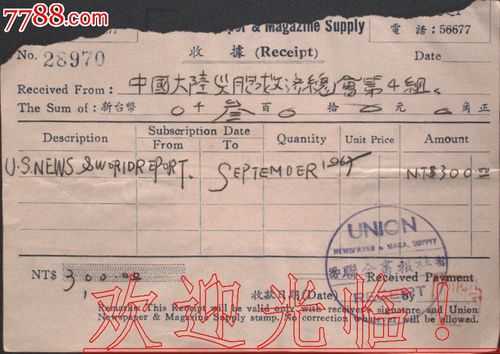 7788.com
per & Magazine Supply
電 話:56677
No. 28970
收 據 (Receipt)
Date
Received From: 中國大陸災胞救濟總會第4組
The Sum of: 新台幣 0千叁百0拾0元0角正
Description Subscription Date From To Quantity Unit Price Amount
U.S. NEWS & WORLD REPORT. SEPTEMBER NT$300.00
UNION
NEWSPAPER & MAGA. SUPPLY
NT$ 300.00
Received Payment
收款日期(Date) By
欢迎光临!
Remarks: This Receipt will be valid only with receiver's signature and Union
Newspaper & Magazine Supply stamp. No correction will be allowed.